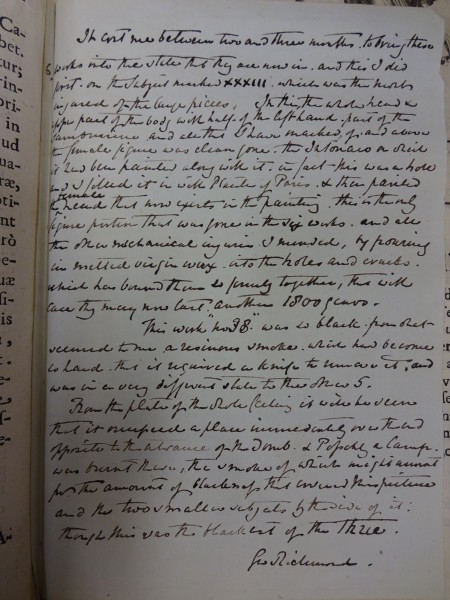 It cost me between two and three months to bring these
works into the state that they are now in. and this I did
first on the subject marked XXXIII. which was the most
injured of the large pieces, In this the whole head &
upper part of the body with half of the left hand. part of the
tambourine and all that I have marked off and above
the female figure was clean gone. the Intonaco on which
it had been painted along with it. in fact this was a hole
and I filled it in with Plaster of Paris. & then painted
the female head that now exists in the painting. this is the only
figure portion that was gone in the six works. and all
the other mechanical injuries I mended, by pouring
in melted virgin wax. into the holes and cracks.
which has bound them so firmly together, that with
care they may now last another 1800 years.
This work "no 38" was so black from what
seemed to me a resinous smoke. which had become
so hard that it required a knife to remove it, and
was in a very different state to the other 5.
From the plate of the whole Ceiling it will be seen
that it occupied a place immediately over and
opposite to the entrance of the Tomb. & Possibly a Lamp
was burnt there, the smoke of which might account
for the amount of blackness that covered this picture
and the two smaller subjects by the side of it.
though this was the blackest of the Three.
Geo Richmond.
Ca-
bet.
in
ud
rae,
pti-
unt
rò
e-
uæ
si-
is